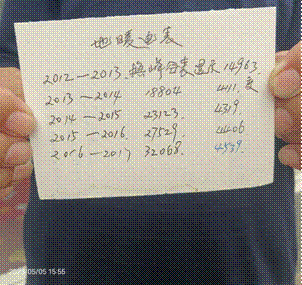 地暖电表
2012—2013.换峰谷表显示 14963.度
2013—2014 18804 411.
2014—2015 23123. 4319.
2015—2016. 27529. 4406
2016—2017 32068. 4539.
2020/05/05 15:55